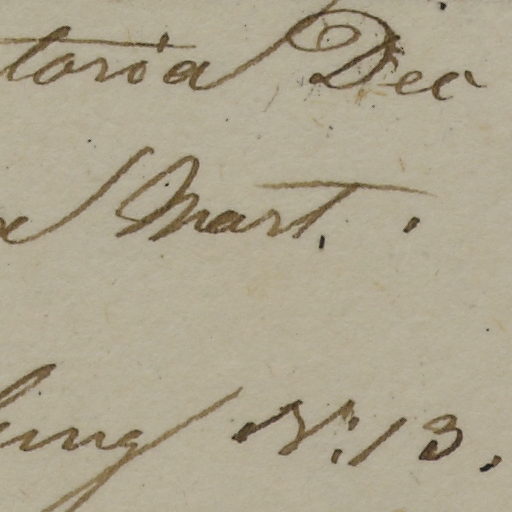 toria Dec
Mart.
ung N. 13.